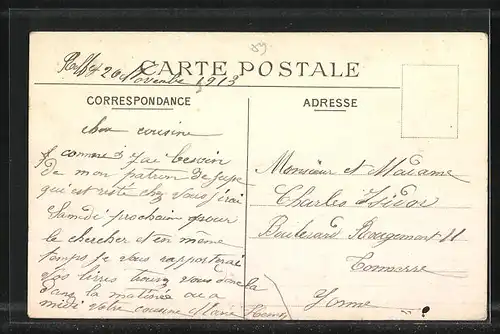 89
20 Novembre 1913
CARTE POSTALE
CORRESPONDANCE
ADRESSE
cher cousine
comme j'ai besoin
de mon patron de jupe
qui est resté chez vous j'irai
Samedi prochain pour
le chercher et en même
temps je vous rapporterai
vos livres trouvez vous donc la
dans la matinée ou a
midi votre cousine Marie
Monsieur et Madame
Charles
Boulevard Rougemont 11
Tonnerre
Yonne